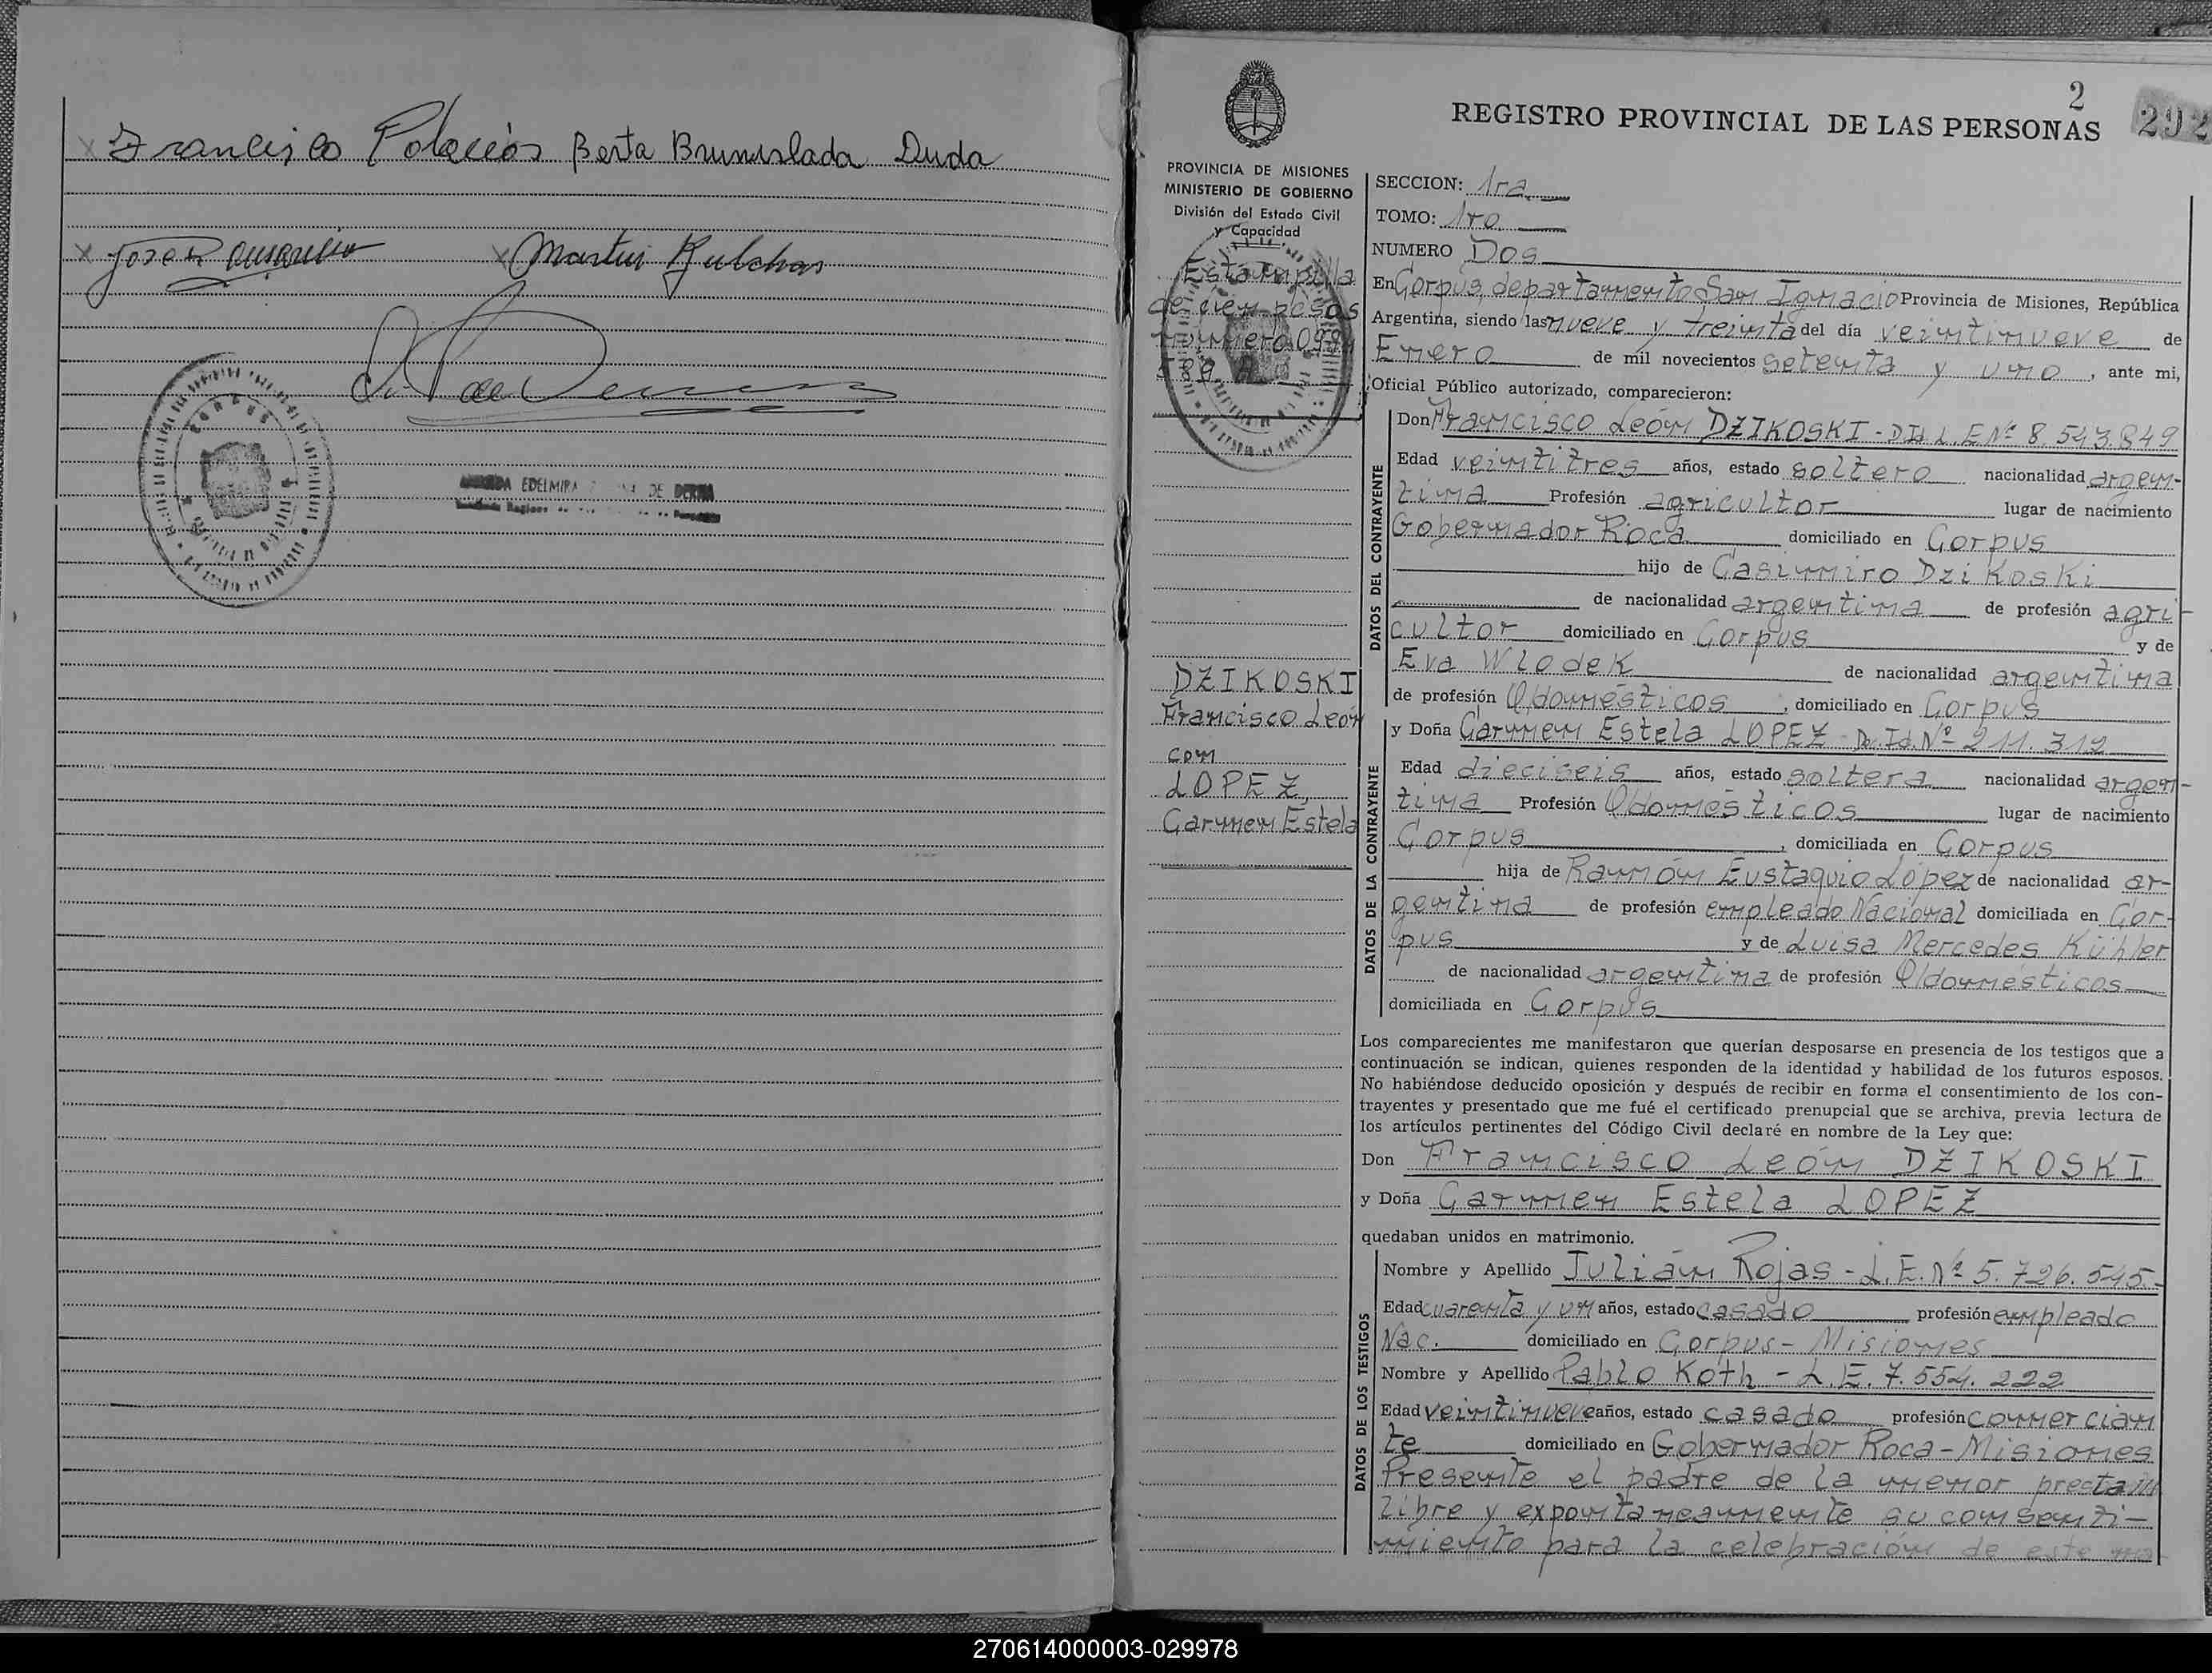 Francisco Palacios Berta Brunislada Duda
Jose R
Martin
CORPUS
EDELMIRA DE DERNA
2
292
REGISTRO PROVINCIAL DE LAS PERSONAS
PROVINCIA DE MISIONES
MINISTERIO DE GOBIERNO
División del Estado Civil
y Capacidad
Estampilla
de cien pesos
número
DZIKOSKI
Francisco León
con
LOPEZ,
Carmen Estela
SECCION: 1ra.
TOMO: 1ro.
NUMERO Dos
En Corpus, departamento San Ignacio Provincia de Misiones, República
Argentina, siendo las nueve y treinta del día veintinueve de
Enero de mil novecientos setenta y uno, ante mi,
Oficial Público autorizado, comparecieron:
DATOS DEL CONTRAYENTE
Don Francisco León DZIKOSKI - D.Id. L.E Nº 8.543.849
Edad veintitres años, estado soltero nacionalidad argen-
tina Profesión agricultor lugar de nacimiento
Gobernador Roca domiciliado en Corpus
hijo de Casimiro Dzikoski
de nacionalidad argentina de profesión agri-
cultor domiciliado en Corpus y de
Eva Wlodek de nacionalidad argentina
de profesión Q/domésticos, domiciliado en Corpus
DATOS DE LA CONTRAYENTE
y Doña Carmen Estela LOPEZ - D. Id. Nº 211.312
Edad dieciseis años, estado soltera nacionalidad argen-
tina Profesión Q/domésticos lugar de nacimiento
Corpus, domiciliada en Corpus
hija de Ramón Eustaquio López de nacionalidad ar-
gentina de profesión empleado Nacional domiciliada en Cor-
pus y de Luisa Mercedes Kühler
de nacionalidad argentina de profesión Q/domésticos
domiciliada en Corpus
Los comparecientes me manifestaron que querían desposarse en presencia de los testigos que a
continuación se indican, quienes responden de la identidad y habilidad de los futuros esposos.
No habiéndose deducido oposición y después de recibir en forma el consentimiento de los con-
trayentes y presentado que me fué el certificado prenupcial que se archiva, previa lectura de
los artículos pertinentes del Código Civil declaré en nombre de la Ley que:
Don Francisco León DZIKOSKI
y Doña Carmen Estela LOPEZ
quedaban unidos en matrimonio.
DATOS DE LOS TESTIGOS
Nombre y Apellido Julián Rojas - L.E. Nº 5.726.545.-
Edad cuarenta y un años, estado casado profesión empleado
Nac. domiciliado en Corpus - Misiones
Nombre y Apellido Pablo Koth - L.E. 7.554.222
Edad veintinueve años, estado casado profesión comercian
te domiciliado en Gobernador Roca - Misiones
Presente el padre de la menor presta
libre y expontaneamente su consenti-
miento para la celebración de este ma
270614000003-029978